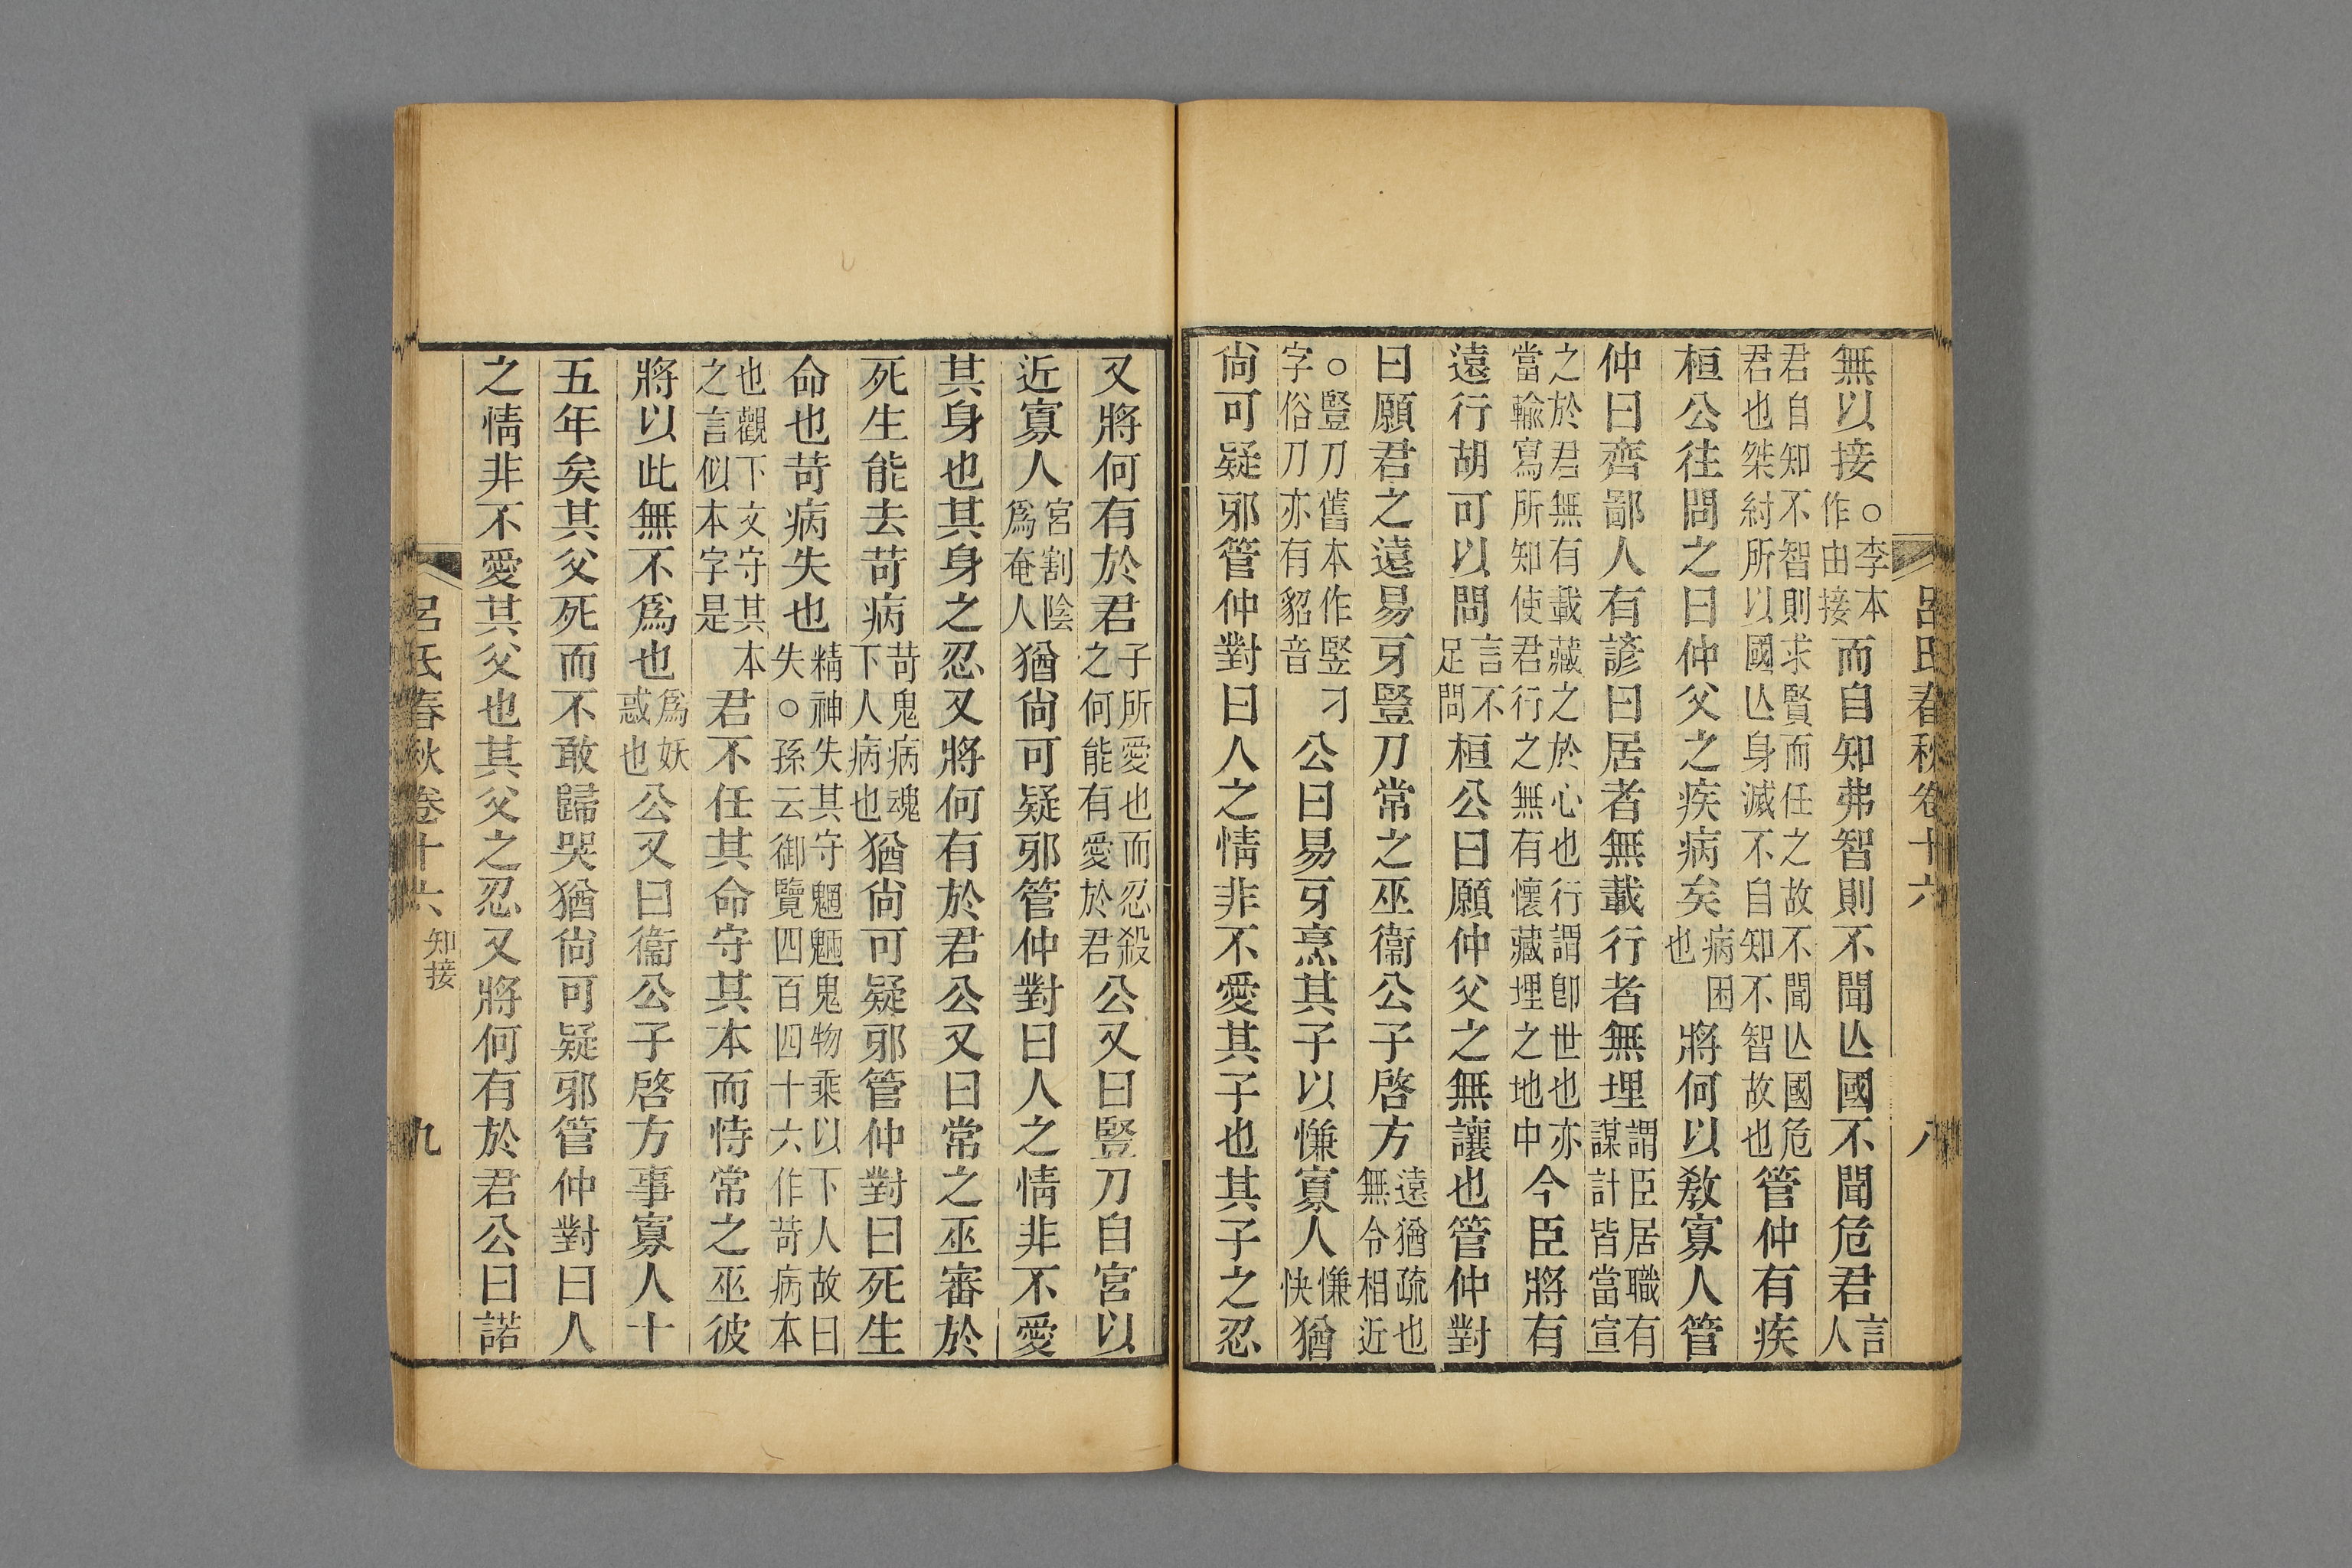 呂氏春秋卷十六 八
無以接○李本作由接而自知弗智則不聞亾國不聞危君言人
君自知不智則求賢而任之故不聞亾國危君也桀紂所以國亾身滅不自知不智故也管仲有疾
桓公往問之曰仲父之疾病矣病困也將何以敎寡人管
仲曰齊鄙人有諺曰居者無載行者無埋謂臣居職有謀計皆當宣
之於君無有載藏之於心也行謂卽世也亦當輸寫所知使君行之無有懷藏埋之地中今臣將有
遠行胡可以問言不足問桓公曰願仲父之無讓也管仲對
曰願君之遠易牙豎刀常之巫衞公子啓方遠猶疏也無令相近
○豎刀舊本作竪刁字俗刀亦有貂音公曰易牙烹其子以慊寡人慊快猶
尙可疑邪管仲對曰人之情非不愛其子也其子之忍
又將何有於君子所愛也而忍殺之何能有愛於君公又曰豎刀自宮以
近寡人宮割陰爲奄人猶尙可疑邪管仲對曰人之情非不愛
其身也其身之忍又將何有於君公又曰常之巫審於
死生能去苛病苛鬼病魂下人病也猶尙可疑邪管仲對曰死生
命也苛病失也精神失其守魍魎鬼物乘以下人故曰失○孫云御覽四百四十六作苛病本
也觀下文守其本之言似本字是君不任其命守其本而恃常之巫彼
將以此無不爲也爲妖惑也公又曰衞公子啓方事寡人十
五年矣其父死而不敢歸哭猶尙可疑邪管仲對曰人
之情非不愛其父也其父之忍又將何有於君公曰諾
呂氏春秋卷十六 知接 九